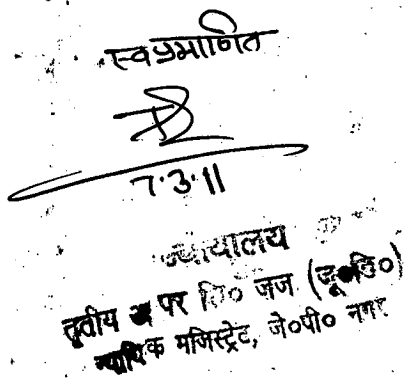 स्वप्रमाणित
7.3.11
न्यायालय
तृतीय अपर सि० जज (जू०डि०)
न्यायिक मजिस्ट्रेट, जे०पी० नगर